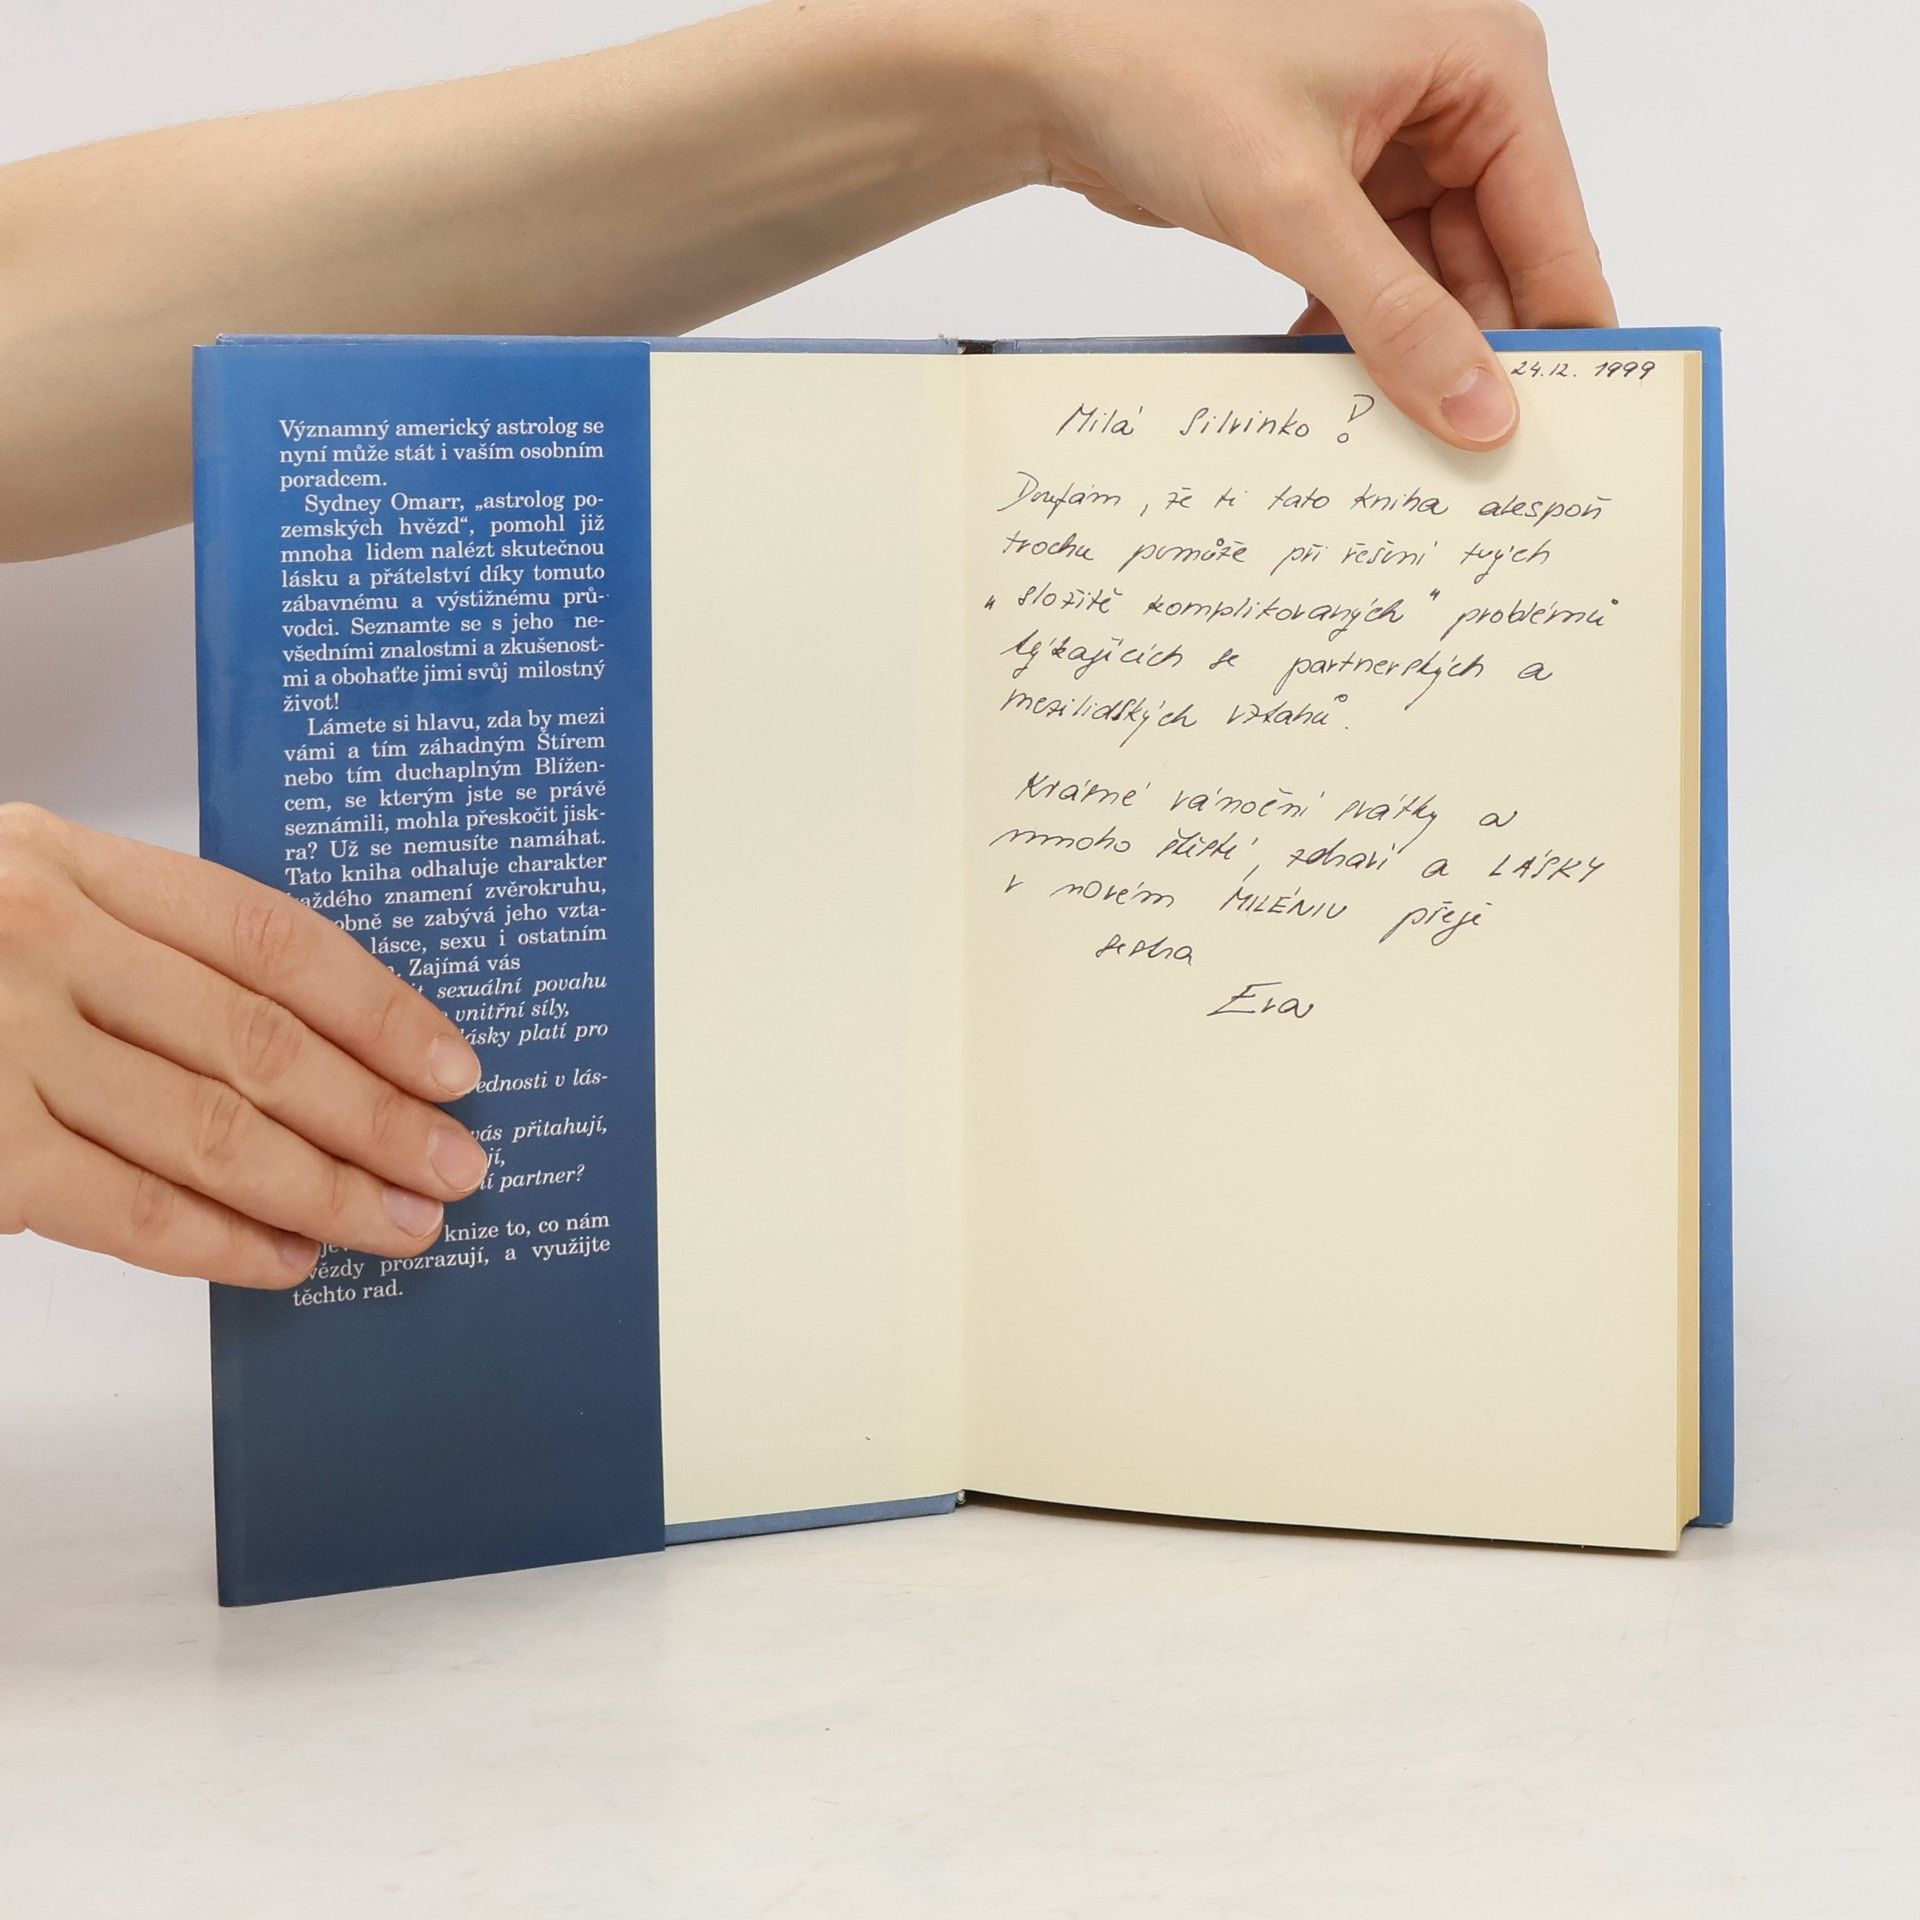 Významný americký astrolog se
nyní může stát i vaším osobním
poradcem.
Sydney Omarr, „astrolog po-
zemských hvězd“, pomohl již
mnoha lidem nalézt skutečnou
lásku a přátelství díky tomuto
zábavnému a výstižnému prů-
vodci. Seznamte se s jeho ne-
všedními znalostmi a zkušenost-
mi a obohaťte jimi svůj milostný
život!
Lámete si hlavu, zda by mezi
vámi a tím záhadným Štírem
nebo tím duchaplným Blížen-
cem, se kterým jste se právě
seznámili, mohla přeskočit jisk-
ra? Už se nemusíte namáhat.
Tato kniha odhaluje charakter
každého znamení zvěrokruhu,
se zabývá jeho vzta-
lásce, sexu i ostatním
Zajímá vás
sexuální povahu
vnitřní síly,
lásky platí pro
v lás-
vás přitahují,
partner?
knize to, co nám
hvězdy prozrazují, a využijte
těchto rad.
24.12. 1999
Milá Silvinko!
Doufám, že ti tato kniha alespoň
trochu pomůže při řešení tvých
„složitě komplikovaných“ problémů
týkajících se partnerských a
mezilidských vztahů.
Krásné vánoční svátky a
mnoho štěstí, zdraví a LÁSKY
v novém MILÉNIU přeje
sestra
Eva